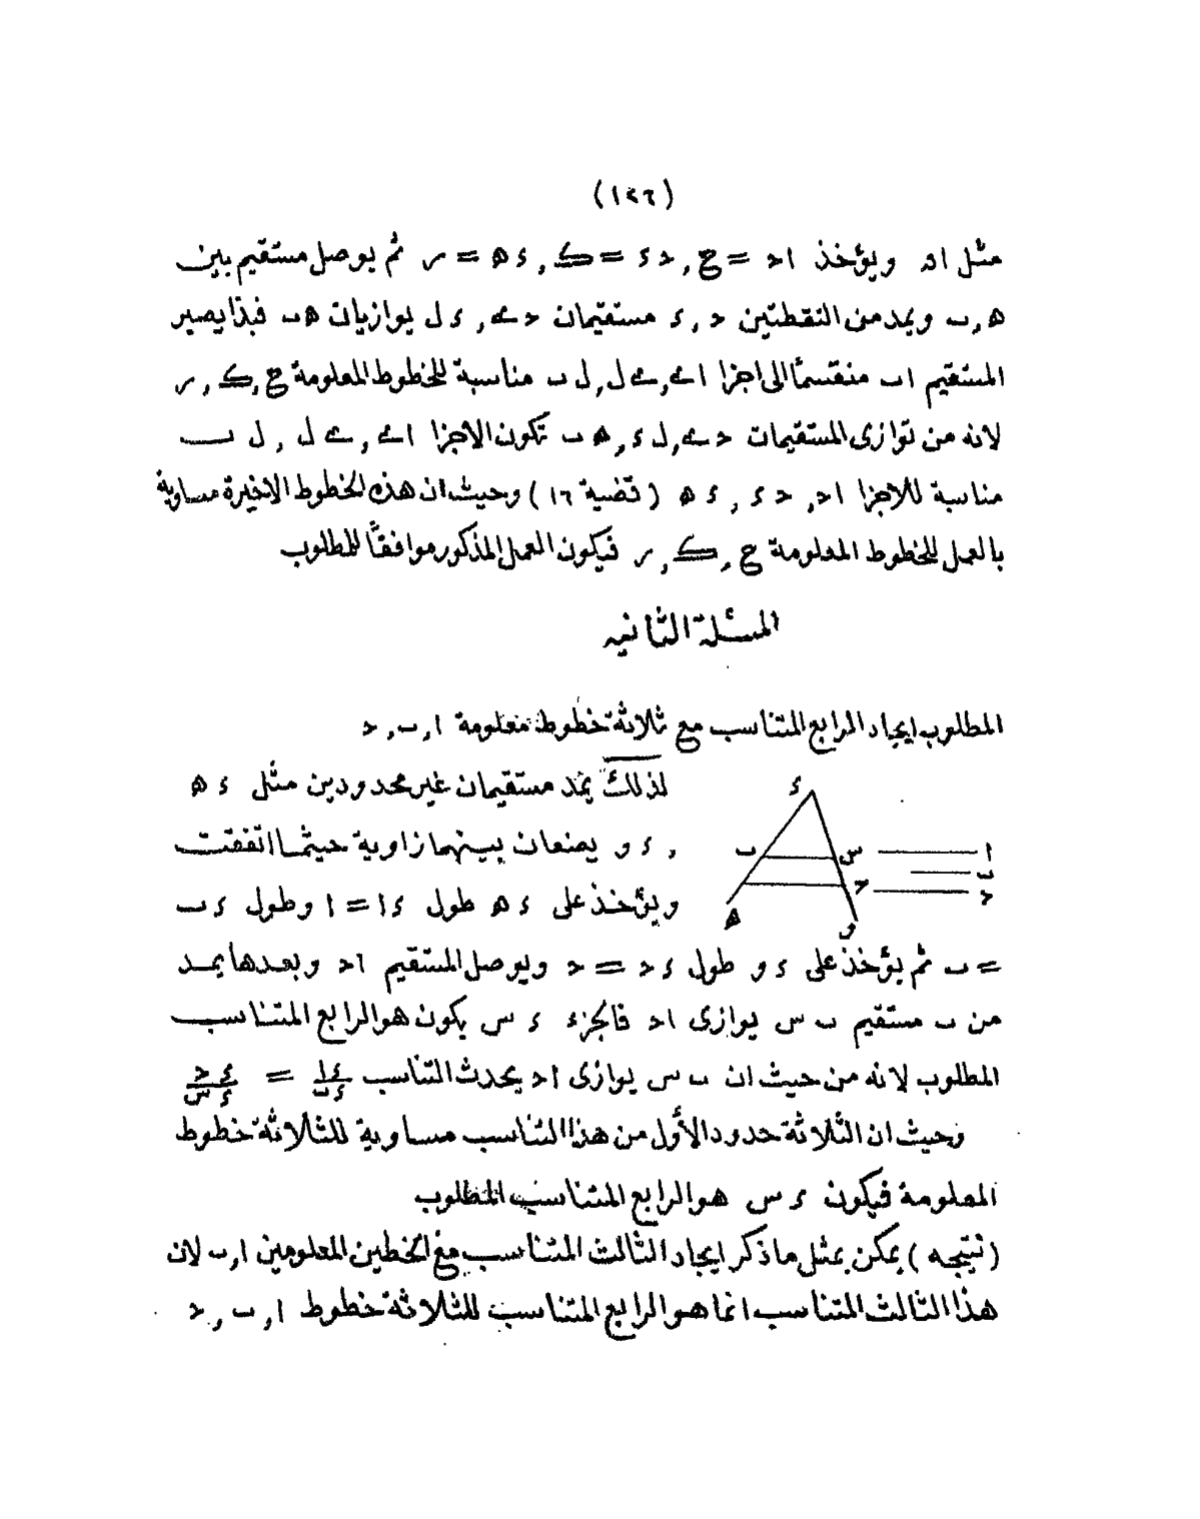 (١٢٦)
مثل ان ويؤخذ ا د = ح , د ء = ك , ء ه = ر ثم يوصل مستقيم بين
ه , ب ويمد من النقطتين د , ء مستقيمان د ے , ء ل يوازيان ه ب فبذا يصير
المستقيم ا ب منقسمًا الى اجزا ا ے , ے ل , ل ب مناسبة للخطوط المعلومة ح , ك , ر
لانه من توازى المستقيمات د ے , ل ء , ه ب تكون الاجزا ا ے , ے ل , ل ب
مناسبة للاجزا ا د , د ء , ء ه ( قضية ١٦ ) وحيث ان هذه الخطوط الاخيرة مساوية
بالعمل للخطوط المعلومة ح , ك , ر فيكون العمل المذكور موافقًا للمطلوب
المسئلة الثانيه
المطلوب ايجاد الرابع المتناسب مع ثلاثة خطوط معلومة ا , ب , د
لذلك يمد مستقيمان غير محدودين مثل ء ه
, ء و يصنعان بينهما زاوية حيثما اتفقت
ويؤخذ على ء ه طول ء ا = ا وطول ء ب
= ب ثم يؤخذ على ء و طول ء د = د ويوصل المستقيم ا د وبعدها يمد
من ب مستقيم ب س يوازى ا د فالجزء ء س يكون هو الرابع المتناسب
المطلوب لانه من حيث ان ب س يوازى ا د يحدث التناسب ء ا / ء ب = ء د / ء س
وحيث ان الثلاثة حدود الأول من هذا التناسب مساوية للثلاثة خطوط
المعلومة فيكون ء س هو الرابع المتناسب المطلوب
( نتيجه ) يمكن بمثل ما ذكر ايجاد الثالث المتناسب مع الخطين المعلومين ا , ب لان
هذا الثالث المتناسب انما هو الرابع المتناسب للثلاثة خطوط ا , ب , د
ء
ب
س
د
ه
و
ا
ب
د